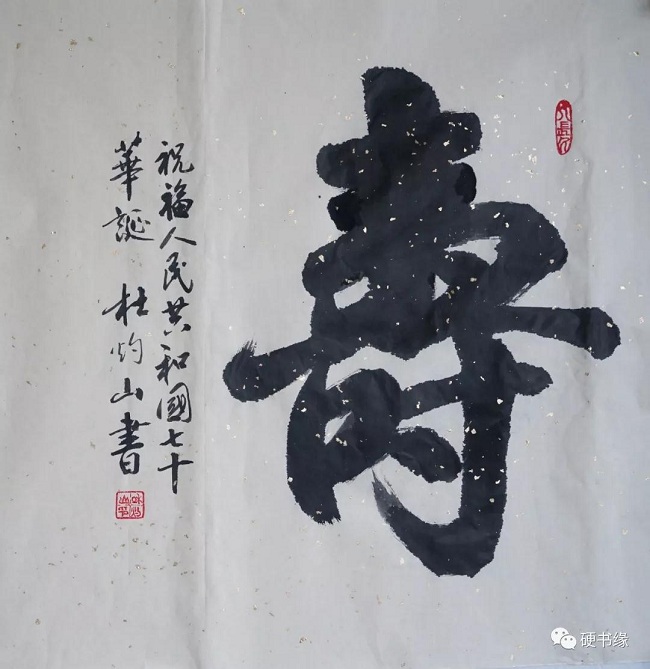 壽
祝福人民共和國七十
華誕 杜灼山書
硬书缘